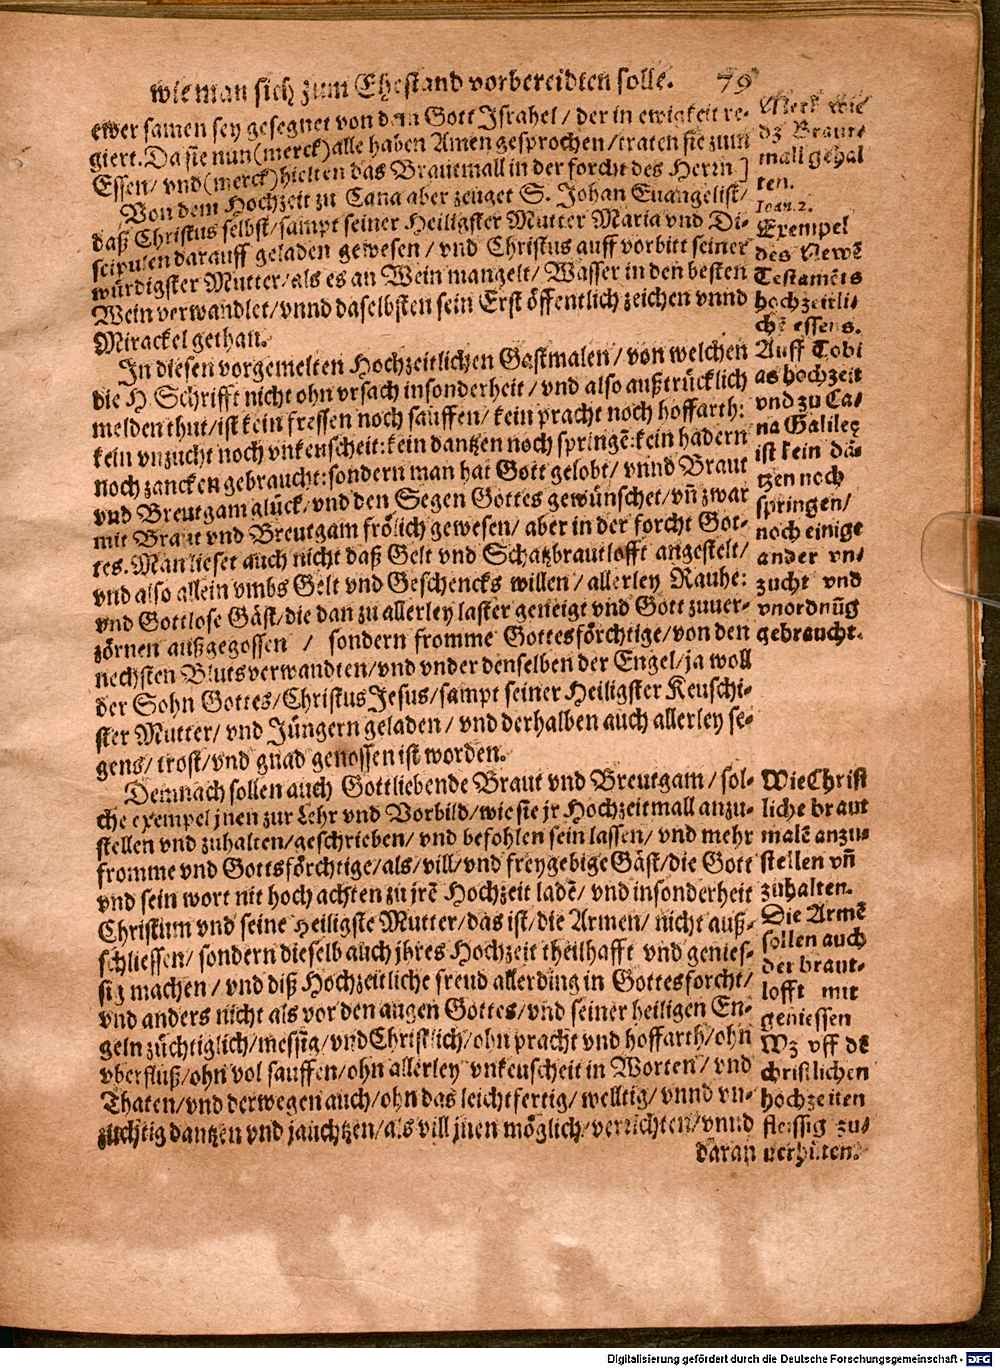 wie man sich zum Ehestand vorbereidten solle. 79
ewer samen sey gesegnet von dem Gott Israhel / der in ewigkeit re-
giert. Da sie nun (merck) alle haben Amen gesprochen / traten sie zum
Essen / vnd (merck) hielten das Brautmall in der forcht des Herrn ]
Von dem Hochzeit zu Cana aber zeuget S. Johan Euangelist /
daß Christus selbst / sampt seiner Heiligster Mutter Maria vnd Di-
scipulen darauff geladen gewesen / vnd Christus auff vorbitt seiner
würdigster Mutter / als es an Wein mangelt / Wasser in den besten
Wein verwandlet / vnnd daselbsten sein Erst öffentlich zeichen vnnd
Mirackel gethan.
In diesen vorgemelten Hochzeitlichen Gastmalen / von welchen
die H. Schrifft nicht ohn vrsach insonderheit / vnd also außtrücklich
melden thut / ist kein fressen noch sauffen / kein pracht noch hoffarth:
kein vnzucht noch vnkeuscheit: kein dantzen noch springē: kein hadern
noch zancken gebraucht: sondern man hat Gott gelobt / vnnd Braut
vnd Breutgam glück / vnd den Segen Gottes gewünschet / vn̄ zwar
mit Braut vnd Breutgam frölich gewesen / aber in der forcht Got-
tes. Man lieset auch nicht daß Gelt vnd Schatzbrautlofft angestelt /
vnd also allein vmbs Gelt vnd Geschencks willen / allerley Rauhe:
vnd Gottlose Gäst / die dan zu allerley laster geneigt vnd Gott zuuer-
zörnen außgegossen / sondern fromme Gottesförchtige / von den
nechsten Blutsverwandten / vnd vnder denselben der Engel / ja woll
der Sohn Gottes / Christus Jesus / sampt seiner Heiligster Keuschi-
ster Mutter / vnd Jüngern geladen / vnd derhalben auch allerley se-
gens / trost / vnd gnad genossen ist worden.
Demnach sollen auch Gottliebende Braut vnd Breutgam / sol-
che exempel jnen zur Lehr vnd Vorbild / wie sie jr Hochzeitmall anzu-
stellen vnd zuhalten / geschrieben / vnd befohlen sein lassen / vnd mehr
fromme vnd Gottsförchtige / als / vill / vnd freygebige Gäst / die Gott
vnd sein wort nit hoch achten zu jrē Hochzeit ladē / vnd insonderheit
Christum vnd seine Heiligste Mutter / das ist / die Armen / nicht auß-
schliessen / sondern dieselb auch jhres Hochzeit theilhafft vnd genies-
sig machen / vnd diß Hochzeitliche freud allerding in Gottesforcht /
vnd anders nicht als vor den augen Gottes / vnd seiner heiligen En-
geln züchtiglich / messig / vnd Christlich / ohn pracht vnd hoffarth / ohn
vberfluß / ohn vol sauffen / ohn allerley vnkeuscheit in Worten / vnd
Thaten / vnd derwegen auch / ohn das leichtfertig / welltig / vnnd vn-
züchtig dantzen vnd jauchtzen / als vill jnen möglich / verrichten / vnnd
daran
Merk wie
dz Braut-
mall gehal
ten.
Ioan. 2.
Exempel
des Newē
Testamēts
hochzeitli-
chē essens.
Auff Tobi
as hochzeit
vnd zu Ca-
na Galileę
ist kein dā-
tzen noch
springen /
noch einige
ander vn-
zucht vnd
vnordnūg
gebraucht.
Wie Christ
liche braut
malē anzu-
stellen vn̄
zuhalten.
Die Armē
sollen auch
der braut-
lofft mit
geniessen
Wz vff dē
christlichen
hochzeiten
fleissig zu-
verhüten.
Digitalisierung gefördert durch die Deutsche Forschungsgemeinschaft - DFG